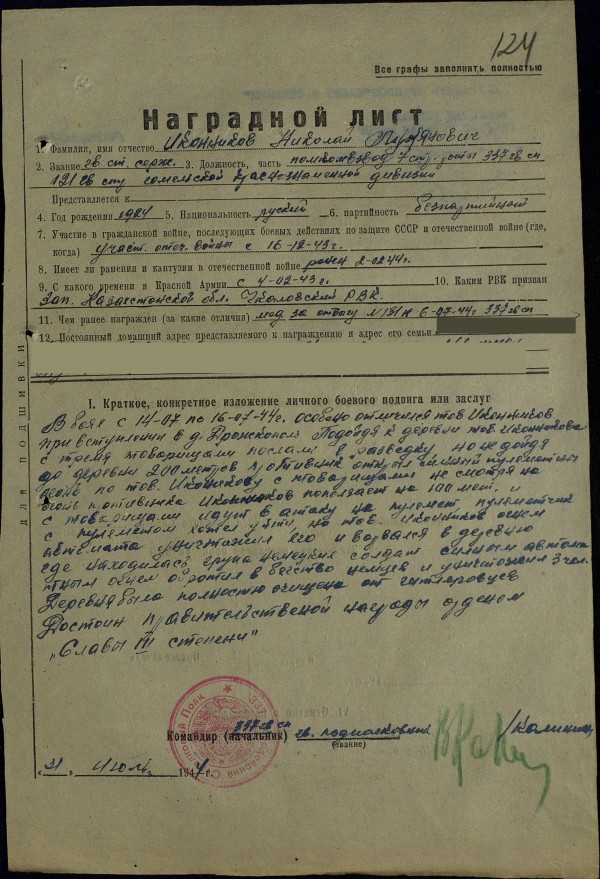 124
Все графы заполнять полностью
Наградной лист
1. Фамилия, имя отчество Иконников Николай
2. Звание гв ст. серж. 3. Должность, часть помкомвзвод 7 стр. роты 337 гв сп
121 гв стр Гомельской Краснознаменной дивизии
Представляется к
4. Год рождения 1924 5. Национальность руский 6. партийность безпартийный
7. Участие в гражданской войне, последующих боевых действиях по защите СССР и отечественной войне (где,
когда) участ. отеч. войны с 16-12-43г.
8. Имеет ли ранения и кантузии в отечественной войне ранен 2-02-44г.
9. С какого времени в Красной Армии с 4-02-43г. 10. Каким РВК призван
Зап. Казахстанской обл. РВК.
11. Чем ранее награжден (за какие отличия) мед. за отвагу 6-07-44г 337 гв сп
12. Постоянный домашний адрес представляемого к награждению и адрес его семьи
ДЛЯ ПОДШИВКИ
I. Краткое, конкретное изложение личного боевого подвига или заслуг
В боях с 14-07 по 16-07-44г. особено отличился тов Иконников
при вступлении в д. Подойдя к деревни тов Иконникова
с тремя товарищами послали в разведку но не дойдя
до деревни 200 метров противник открыл сильный пулеметный
огонь по тов. Иконникову с товарищами не смотря на
огонь противника Иконников поползает на 100 мет. и
с товарищами идут в атаку на пулемет пулеметчик
с пулеметом хотел уйти, но тов. Иконников огнем
автомата уничтожил его и ворвался в деревню
где находилась група немецких солдат сильным автома
тным огнем обратил в бегство немцев и уничтожил 3 чел.
Деревня была полностью очищена от гитлеровцев
Достоин правительственой награды орденом
„Славы III степени"
337 гв сп
Командир (начальник) гв. подполковник /Калинин
(звание)
„31" Июля 1944г.